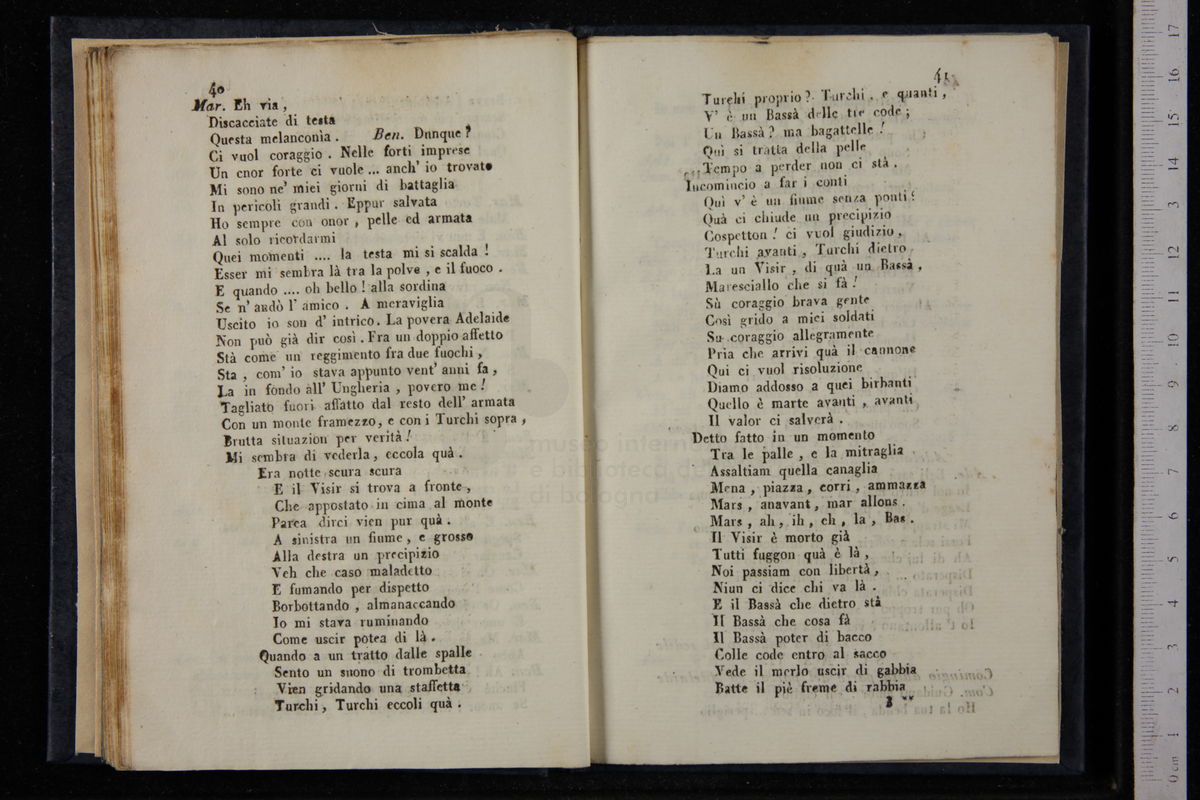 40
Mar. Eh via,
Discacciate di testa
Questa melanconìa. Ben. Dunque?
Ci vuol coraggio. Nelle forti imprese
Un cnor forte ci vuole... anch' io trovato
Mi sono ne' miei giorni di battaglia
In pericoli grandi. Eppur salvata
Ho sempre con onor, pelle ed armata
Al solo ricordarmi
Quei momenti .... la testa mi si scalda!
Esser mi sembra là tra la polve, e il fuoco.
E quando .... oh bello! alla sordina
Se n' andò l' amico. A meraviglia
Uscito io son d' intrico. La povera Adelaide
Non può già dir così. Fra un doppio affetto
Stà come un reggimento fra due fuochi,
Sta, com' io stava appunto vent' anni fa,
La in fondo all' Ungheria, povero me!
Tagliato fuori affatto dal resto dell' armata
Con un monte framezzo, e con i Turchi sopra,
Brutta situazion per verità!
Mi sembra di vederla, eccola quà.
Era notte scura scura
E il Visir si trova a fronte,
Che appostato in cima al monte
Parea dirci vien pur quà.
A sinistra un fiume, e grosso
Alla destra un precipizio
Veh che caso maladetto
E fumando per dispetto
Borbottando, almanaccando
Io mi stava ruminando
Come uscir potea di là.
Quando a un tratto dalle spalle
Sento un suono di trombetta
Vien gridando una staffetta
Turchi, Turchi eccoli quà.
41
Turchi proprio? Turchi, e quanti,
V' è un Bassà delle tre code;
Un Bassà? ma bagattelle!
Quì si tratta della pelle
Tempo a perder non ci stà.
Incomincio a far i conti
Quì v' è un fiume senza ponti!
Quà ci chiude un precipizio
Cospetton! ci vuol giudizio,
Turchi avanti, Turchi dietro,
La un Visir, di quà un Bassà,
Maresciallo che si fà!
Sù coraggio brava gente
Così grido a miei soldati
Su coraggio allegramente
Pria che arrivi quà il cannone
Qui ci vuol risoluzione
Diamo addosso a quei birbanti
Quello è marte avanti, avanti
Il valor ci salverà.
Detto fatto in un momento
Tra le palle, e la mitraglia
Assaltiam quella canaglia
Mena, piazza, corri, ammazza
Mars, anavant, mar allons.
Mars, ah, ih, ch, la, Bas.
Il Visir è morto già
Tutti fuggon quà è là,
Noi passiam con libertà,
Niun ci dice chi va là.
E il Bassà che dietro stà
Il Bassà che cosa fà
Il Bassà poter di bacco
Colle code entro al sacco
Vede il merlo uscir di gabbia
Batte il piè freme di rabbia
museo intern
e biblioteca de
di bologna